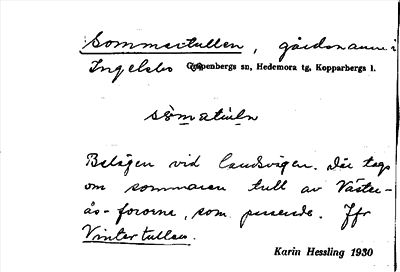 Sommartullen, gårdsnamn i
Ingelsbo Grytenbergs sn, Hedemora tg, Kopparbergs l.
Belägen vid landsvägen. Där togs
om sommaren tull av Väster-
ås-fororna, som passerade. Jfr
Vintertullen.
Karin Hessling 1930